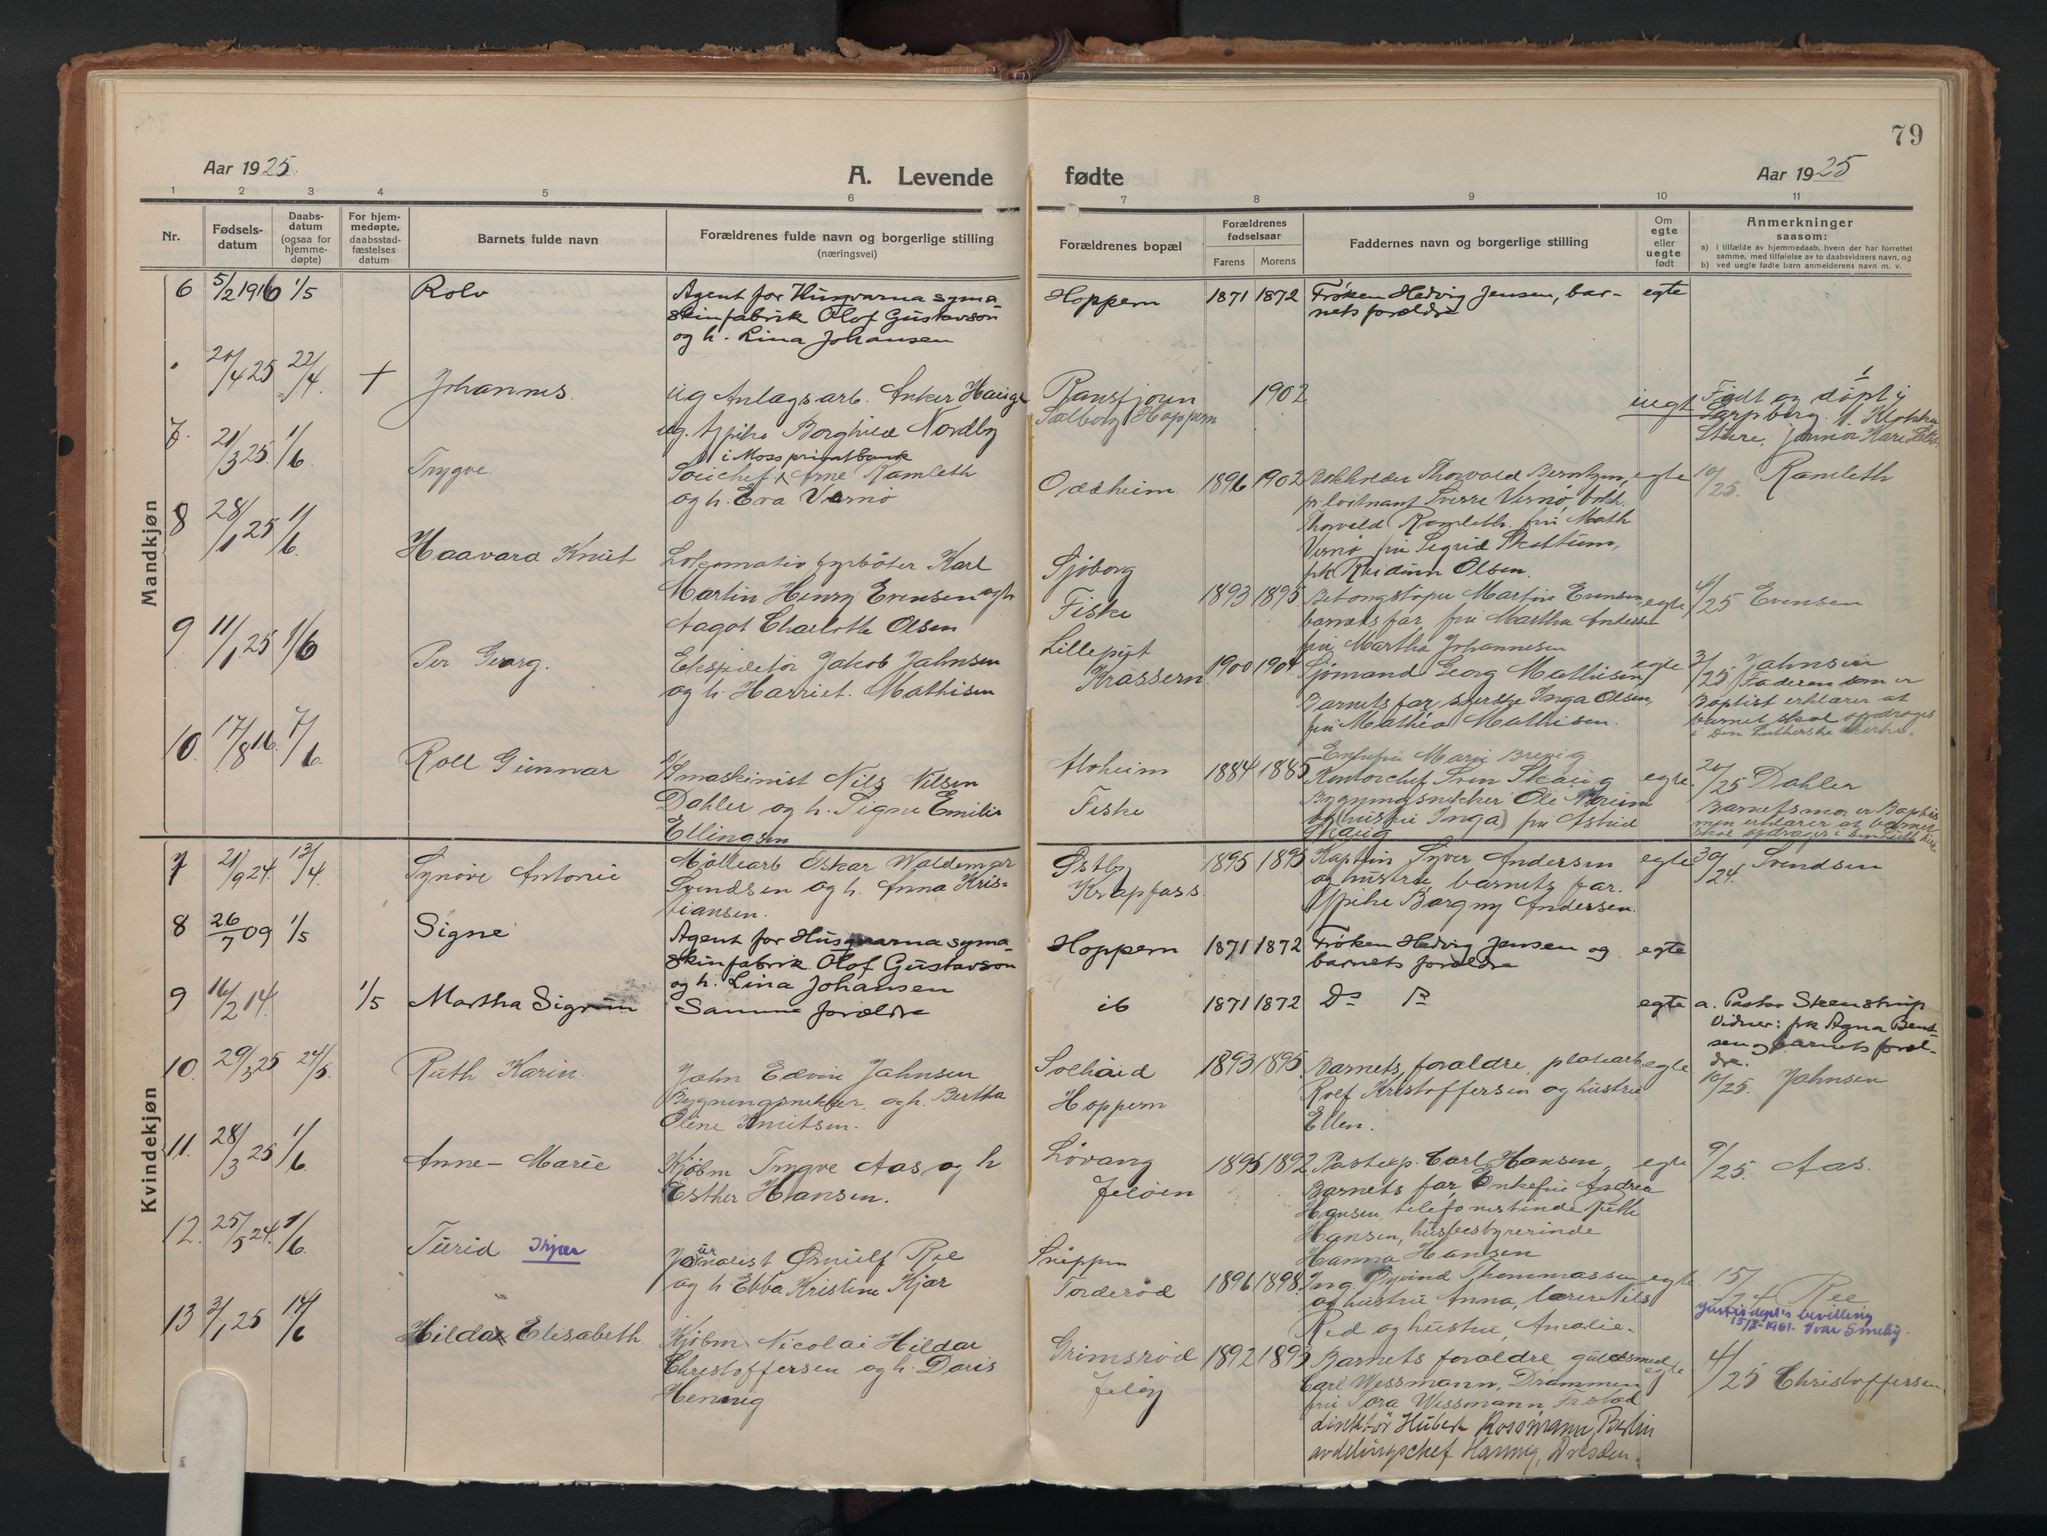 79
Aar 1925. A. Levende fødte Aar 1925
1 2 3 4 5 6 7 8 9 10 11
Nr. Fødsels-datum Daabs-datum (ogsaa for hjemme-døpte) For hjem-medøpte, daabsstad-fæstelses datum Barnets fulde navn Forældrenes fulde navn og borgerlige stilling (næringsvei) Forældrenes bopæl Forældrenes fødselsaar Farens Morens Faddernes navn og borgerlige stilling Om egte eller uegte født Anmerkninger saasom:
a) i tilfælde av hjemmedaab, hvem der har forrettet samme, med tilføielse av to daabsvidners navn, og
b) ved uegte fødte barn anmelderens navn m. v.
Mandkjøn
6 5/2 1916 1/5 Rolv Agent for Husqvarna syma- Hoppern 1871 1872 Frøken Hedvig Jensen, bar- egte
skinfabrik Olof Gustavson nets forældre
og h. Lina Johansen
/4 25 22/4 + Johannes. ug Anlagsarb. Anker Hauge 1902 uegt Født og døpt i
ug. Borghild Nordby Hoppern Sarpsborg.
7. 21/3 25 1/6 Trygve i Moss privatbank
Arne Ramleth Oddheim 1896 1902 Bokholder Thorvald Berntzen, egte 10/25. Ramleth
og h. Eva Vernø Vernø, bokh.
Thorvald Ramleth. fru Math
8 28/1 25 1/6 Haavard Knut Lokomotivfyrbøter Karl Sjøborg Vernø fru Sigrid Skattum,
frk Reidunn Olsen.
Martin Henry Evensen og h. Fiske 1893 1895 Betongstøper Martin Evensen egte 4/25 Evensen
Aagot Charlotte Olsen barnets far, fru Martha Andersen
fru Martha Johannesen
9 11/1 25 1/6 Per Georg. Ekspeditør Jakob Jahnsen Krassern 1900 1904 Sjømand Georg Mathisen egte 3/25 Jahnsen
og h. Harriet Mathisen Barnets far, Inga Olsen, Faderen som er
fru Mathea Mathisen. Baptist erklærer at
barnet skal opdrages
i den Lutherske kirke.
10. 17/8 16. 7/6 Roll Gunnar maskinist Nils Nilsen Aloheim 1884 1885 Enkefru Marie Brevig egte 20/25 Dahler
Dahler og h. Signe Emilie Fiske Kontorchef Sven Skaug Barnets mor er Baptist
Ellingsen Bygningsnekker Ole men erklærer at barnet
(hustru Inga) fru Astrid skal opdrages i
Skaug
Kvindekjøn
7 21/9 24. 13/4 Synøve Antonie Møllearb Oskar Waldemar Østby 1895 1895 Kaptein Syver Andersen egte 30/24. Svendsen
Svendsen og h. Anna Kris- Krapfoss og hustru, barnets far.
tiansen. Borgny Andersen.
8 26/7 09 1/5 Signe Agent for Husqvarna syma- Hoppern 1871 1872 Frøken Hedvig Jensen og egte
skinfabrik Olof Gustavson barnets forældre
og h. Lina Johansen
9 16/2 14. 1/5 Martha Sigrun Samme forældre ib 1871 1872 Do Do egte a. Pastor Skeenstrup
Vidner: frk Agna Bent-
sen og barnets foræl-
dre.
10. 29/3 25 24/5. Ruth Karin. John Edvin Jahnsen Solhaid 1893 1895. Barnets forældre, platearb egte 10/25. Jahnsen
Bygningsnekker, og h. Bertha Hoppern Rolf Kristoffersen og hustru
Oline Knutsen. Ellen.
11. 28/3 25 1/6 Anne-Marie Kjøbm Trygve Aas og h. Løvang 1895 1892 Carl Hansen egte 9/25. Aas.
Esther Hansen. Jeløen Barnets far, Enkefru Andrea
Hansen, telefonistinde Ruth
Hansen, husbestyrerinde
Hanna Hansen
12. 25/5 24. 1/6 Turid Kjær Journalist Ørnulf Ree
og h Ebba Kristine Kjær Torderød 1896 1898. Ing Øyvind Thommassen egte. 15/ Ree
og hustru Anna, lærer Nils justisdepts bevilling
Rød og hustru, Amalie. 1961. Ivar Smeby.
13 3/1 25 14/6 Hilda Elisabeth. Kjøbm Nicolai Hildar Grimsrød 1892 1893 Barnets forældre, guldsmed egte 4/25 Christoffersen
Christoffersen og h. Doris Jeløy Carl Wessmann, Drammen
Hennig fru Tora Wessmann
direktør Hubert Rossmann, Berlin
avdelingschef Hannig, Dresden.